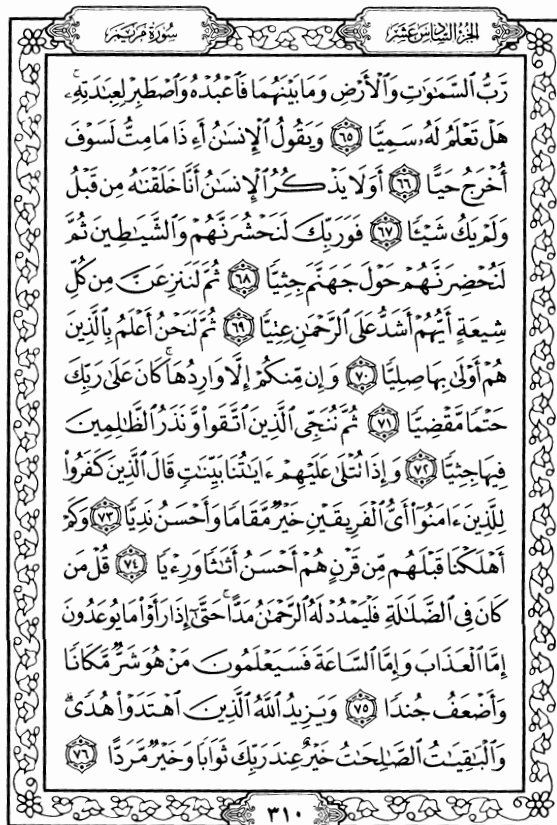 سُورَةُ مَرْيَمَ
الجُزْءُ السَّادِسَ عَشَرَ
رَّبُّ السَّمَٰوَٰتِ وَالْأَرْضِ وَمَا بَيْنَهُمَا فَاعْبُدْهُ وَاصْطَبِرْ لِعِبَٰدَتِهِۦۚ
هَلْ تَعْلَمُ لَهُۥ سَمِيًّا ٦٥ وَيَقُولُ الْإِنسَٰنُ أَءِذَا مَا مِتُّ لَسَوْفَ
أُخْرَجُ حَيًّا ٦٦ أَوَلَا يَذْكُرُ الْإِنسَٰنُ أَنَّا خَلَقْنَٰهُ مِن قَبْلُ
وَلَمْ يَكُ شَيْـًٔا ٦٧ فَوَرَبِّكَ لَنَحْشُرَنَّهُمْ وَالشَّيَٰطِينَ ثُمَّ
لَنُحْضِرَنَّهُمْ حَوْلَ جَهَنَّمَ جِثِيًّا ٦٨ ثُمَّ لَنَنزِعَنَّ مِن كُلِّ
شِيعَةٍ أَيُّهُمْ أَشَدُّ عَلَى الرَّحْمَٰنِ عِتِيًّا ٦٩ ثُمَّ لَنَحْنُ أَعْلَمُ بِالَّذِينَ
هُمْ أَوْلَىٰ بِهَا صِلِيًّا ٧٠ وَإِن مِّنكُمْ إِلَّا وَارِدُهَاۚ كَانَ عَلَىٰ رَبِّكَ
حَتْمًا مَّقْضِيًّا ٧١ ثُمَّ نُنَجِّى الَّذِينَ اتَّقَوا۟ وَّنَذَرُ الظَّٰلِمِينَ
فِيهَا جِثِيًّا ٧٢ وَإِذَا تُتْلَىٰ عَلَيْهِمْ ءَايَٰتُنَا بَيِّنَٰتٍ قَالَ الَّذِينَ كَفَرُوا۟
لِلَّذِينَ ءَامَنُوٓا۟ أَىُّ الْفَرِيقَيْنِ خَيْرٌ مَّقَامًا وَأَحْسَنُ نَدِيًّا ٧٣ وَكَمْ
أَهْلَكْنَا قَبْلَهُم مِّن قَرْنٍ هُمْ أَحْسَنُ أَثَٰثًا وَرِءْيًا ٧٤ قُلْ مَن
كَانَ فِى الضَّلَٰلَةِ فَلْيَمْدُدْ لَهُ الرَّحْمَٰنُ مَدًّاۚ حَتَّىٰٓ إِذَا رَأَوْا۟ مَا يُوعَدُونَ
إِمَّا الْعَذَابَ وَإِمَّا السَّاعَةَ فَسَيَعْلَمُونَ مَنْ هُوَ شَرٌّ مَّكَانًا
وَأَضْعَفُ جُندًا ٧٥ وَيَزِيدُ اللَّهُ الَّذِينَ اهْتَدَوْا۟ هُدًىۗ
وَالْبَٰقِيَٰتُ الصَّٰلِحَٰتُ خَيْرٌ عِندَ رَبِّكَ ثَوَابًا وَخَيْرٌ مَّرَدًّا ٧٦
٣١٠